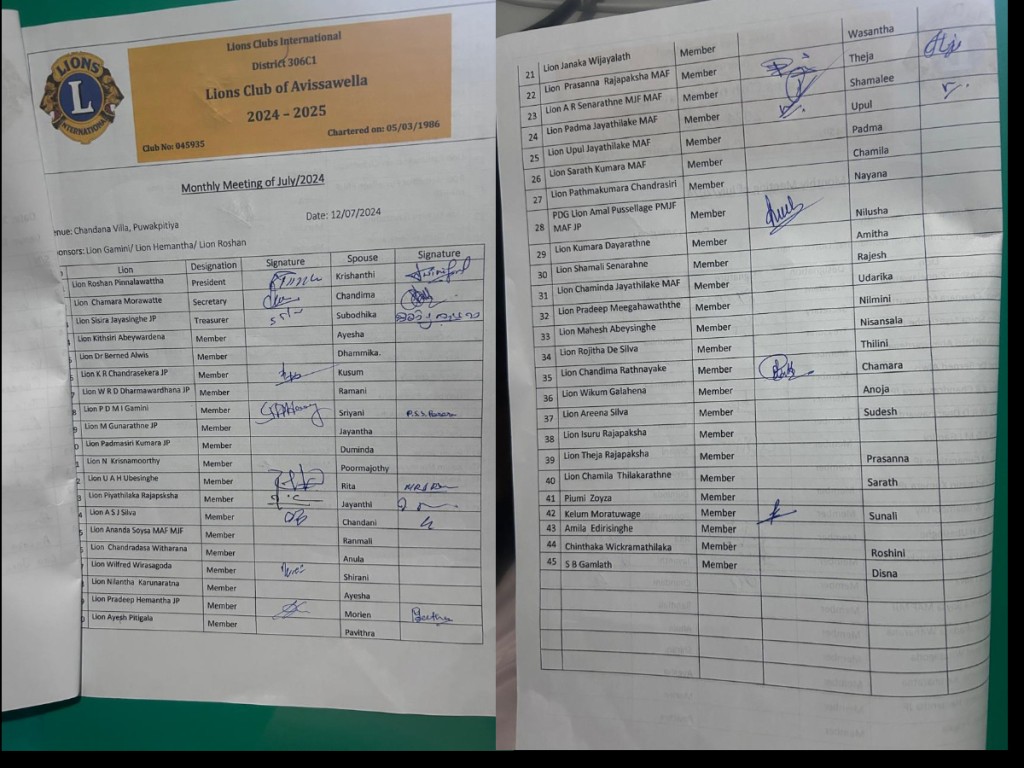 Lions Clubs International
District 306C1
Lions Club of Avissawella
2024 – 2025
Chartered on: 05/03/1986
Club No: 045935
LIONS
L
INTERNATIONAL
Monthly Meeting of July/2024
Date: 12/07/2024
enue: Chandana Villa, Puwakpitiya
onsors: Lion Gamini/ Lion Hemantha/ Lion Roshan
Lion Designation Signature Spouse Signature
Lion Roshan Pinnalawattha President Krishanthi
Lion Chamara Morawatte Secretary Chandima
Lion Sisira Jayasinghe JP Treasurer Subodhika
Lion Kithsiri Abeywardena Member Ayesha
Lion Dr Berned Alwis Member Dhammika.
Lion K R Chandrasekera JP Member Kusum
Lion W R D Dharmawardhana JP Member Ramani
8 Lion P D M I Gamini Member Sriyani
9 Lion M Gunarathne JP Member Jayantha
0 Lion Padmasiri Kumara JP Member Duminda
1 Lion N Krisnamoorthy Member Poormajothy
2 Lion U A H Ubesinghe Member Rita
3 Lion Piyathilaka Rajapsksha Member Jayanthi
4 Lion A S J Silva Member Chandani
5 Lion Ananda Soysa MAF MJF Member Ranmali
Lion Chandradasa Witharana Member Anula
Lion Wilfred Wirasagoda Member Shirani
Lion Nilantha Karunaratna Member Ayesha
Lion Pradeep Hemantha JP Member Morien
Lion Ayesh Pitigala Member Pavithra
21 Lion Janaka Wijayalath Member Wasantha
22 Lion Prasanna Rajapaksha MAF Member Theja
23 Lion A R Senarathne MJF MAF Member Shamalee
24 Lion Padma Jayathilake MAF Member Upul
25 Lion Upul Jayathilake MAF Member Padma
26 Lion Sarath Kumara MAF Member Chamila
27 Lion Pathmakumara Chandrasiri Member Nayana
28 PDG Lion Amal Pussellage PMJF MAF JP Member Nilusha
29 Lion Kumara Dayarathne Member Amitha
30 Lion Shamali Senarahne Member Rajesh
31 Lion Chaminda Jayathilake MAF Member Udarika
32 Lion Pradeep Meegahawaththe Member Nilmini
33 Lion Mahesh Abeysinghe Member Nisansala
34 Lion Rojitha De Silva Member Thilini
35 Lion Chandima Rathnayake Member Chamara
36 Lion Wikum Galahena Member Anoja
37 Lion Areena Silva Member Sudesh
38 Lion Isuru Rajapaksha Member
39 Lion Theja Rajapaksha Member Prasanna
40 Lion Chamila Thilakarathne Member Sarath
41 Piumi Zoyza Member
42 Kelum Moratuwage Member Sunali
43 Amila Edirisinghe Member
44 Chinthaka Wickramathilaka Member Roshini
45 S B Gamlath Member Disna